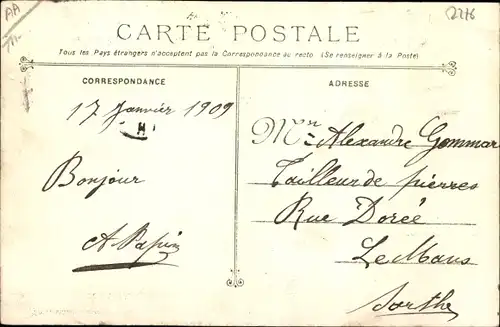 AA
2276
CARTE POSTALE
Tous les Pays étrangers n'acceptent pas la Correspondance au recto. (Se renseigner à la Poste)
CORRESPONDANCE
17 Janvier 1909
H
Bonjour
A Papin
ADRESSE
Mn Alexandre Gommar
Tailleur de pierres
Rue Dorée
Le Mans
Sarthe